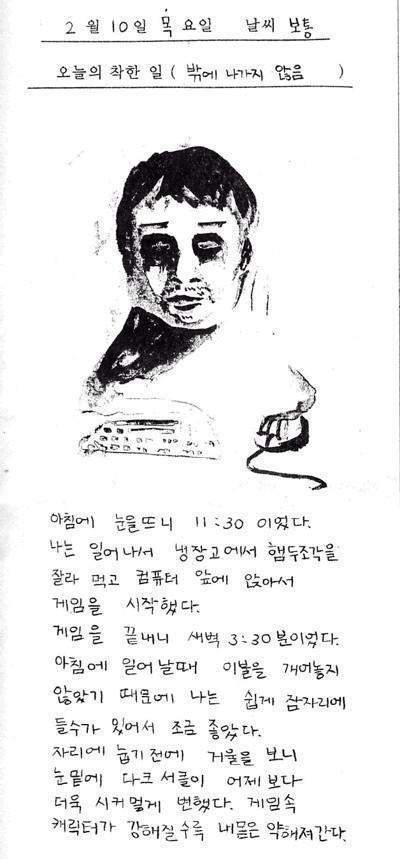 2월 10일 목요일 날씨 보통
오늘의 착한 일 ( 밖에 나가지 않음 )
아침에 눈을뜨니 11:30 이었다.
나는 일어나서 냉장고에서 햄두조각을
잘라 먹고 컴퓨터 앞에 앉아서
게임을 시작했다.
게임을 끝내니 새벽 3:30분이었다.
아침에 일어날때 이불을 개어놓지
않았기 때문에 나는 쉽게 잠자리에
들수가 있어서 조금 좋았다.
자리에 눕기전에 거울을 보니
눈밑에 다크서클이 어제보다
더욱 시커멓게 변했다. 게임속
캐릭터가 강해질수록 내몸은 약해져간다.